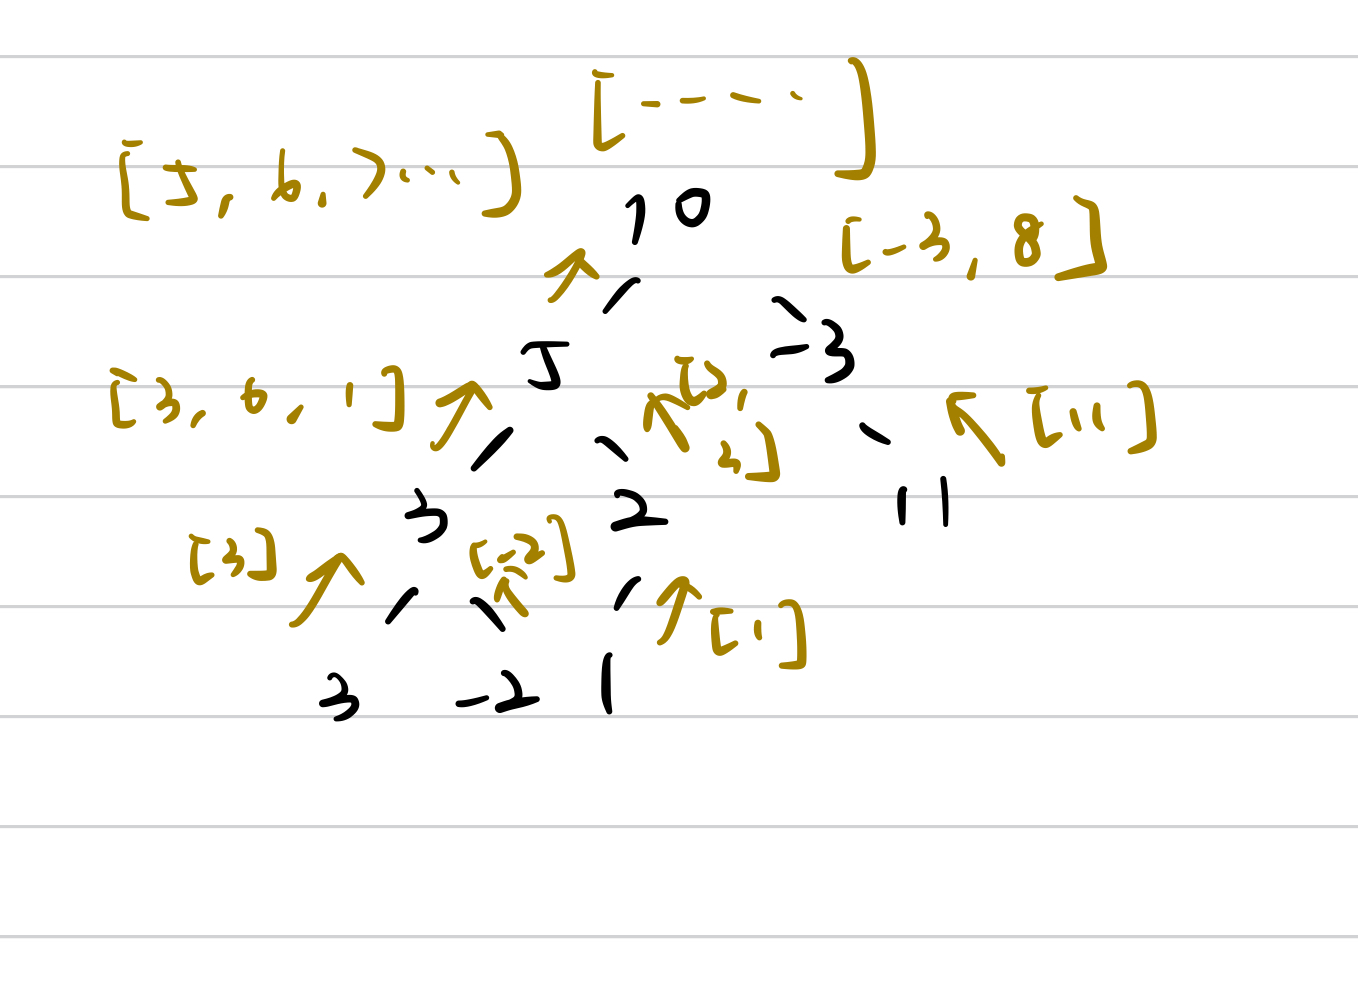 [----]
[5, 6, 7...]
10
[-3, 8]
5
-3
[3, 6, 1]
[3,
2]
[11]
3
2
11
[3]
[-2]
[1]
3
-2
1